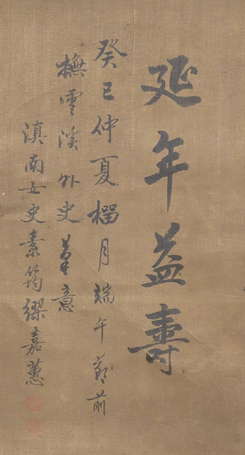 延年益壽
癸巳仲夏榴月端午節前
橅雲溪外史筆意
滇南女史素筠繆嘉蕙